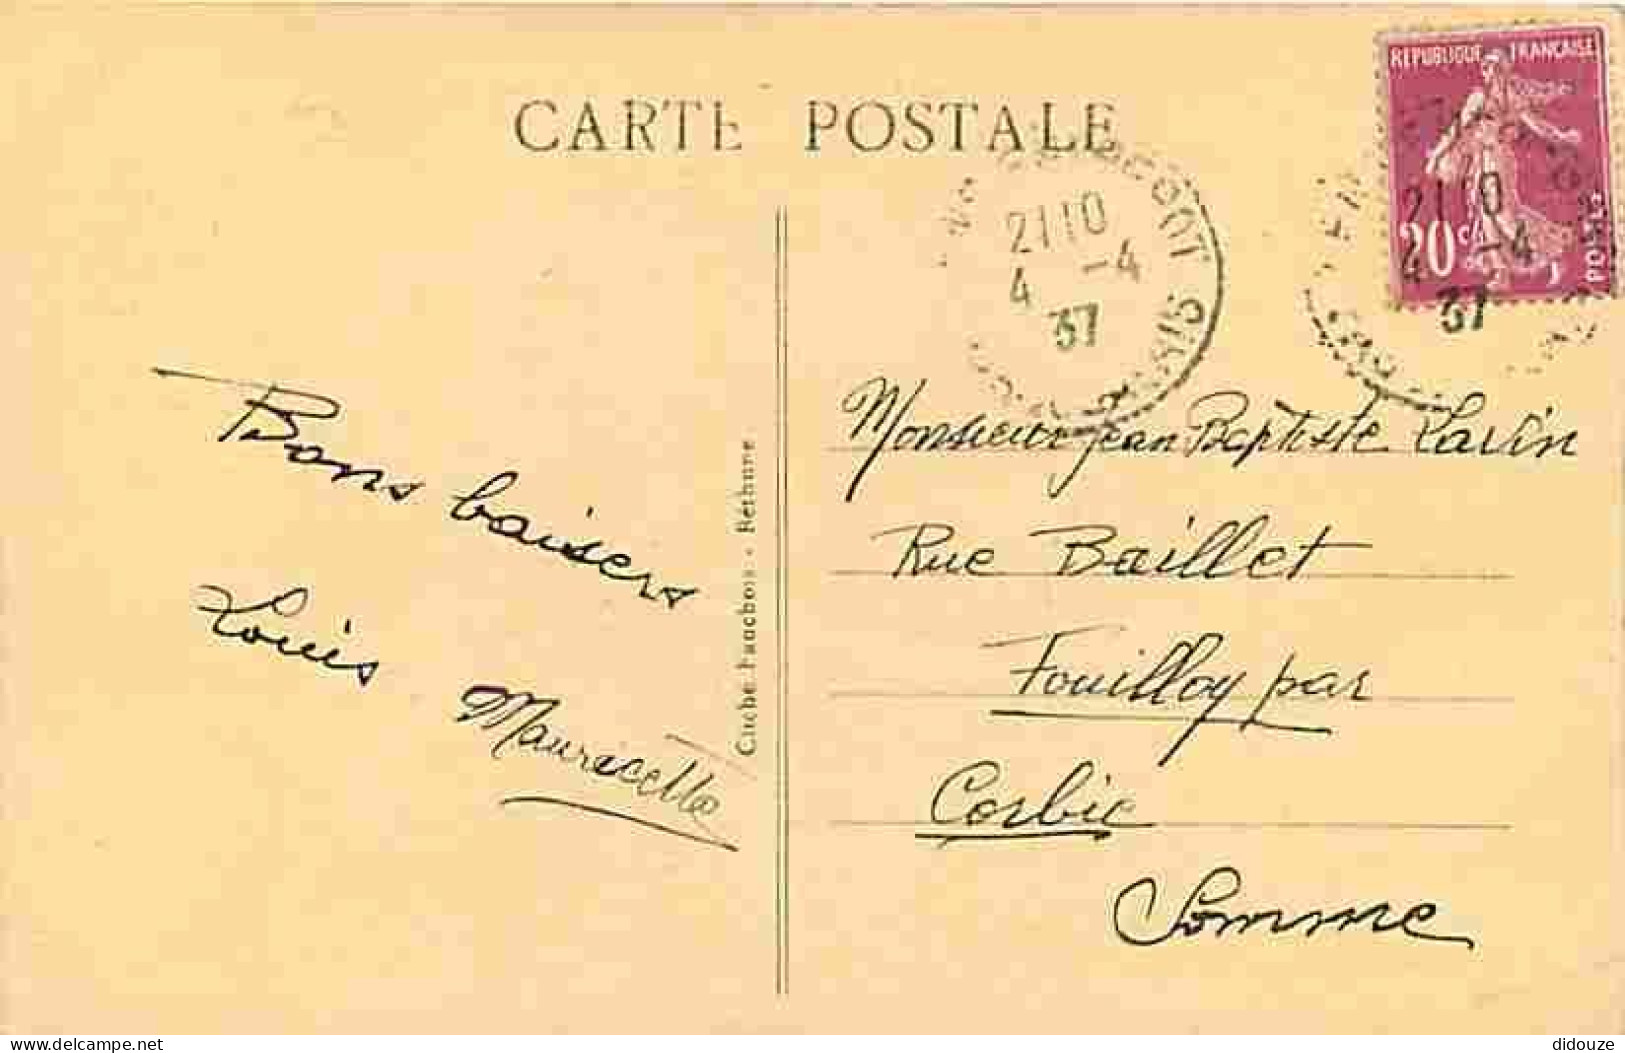 CARTE POSTALE
REPUBLIQUE FRANÇAISE
20c
POSTES
2110
4 -4
37
2110
4 -4
37
Bons baisers
Louis
Mauricette
Béthune
Monsieur Jean Baptiste Lavin
Rue Baillet
Fouilloy par
Corbie
Somme
delcampe.net
didouze